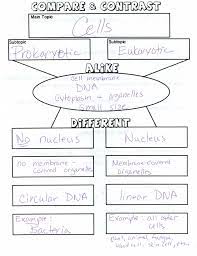 COMPARE & CONTRAST
Main Topic
Cells
Subtopic
Prokaryotic
Subtopic
Eukaryotic
ALIKE
Cell membrane
DNA
Cytoplasm - organelles
Small size
DIFFERENT
No nucleus
Nucleus
no membrane-
covered organelles
Membrane-
covered organelles
Circular DNA
linear DNA
Example:
Bacteria
Example: all other
cells
plant, animal, fungus,
blood cell, skin cell, etc.